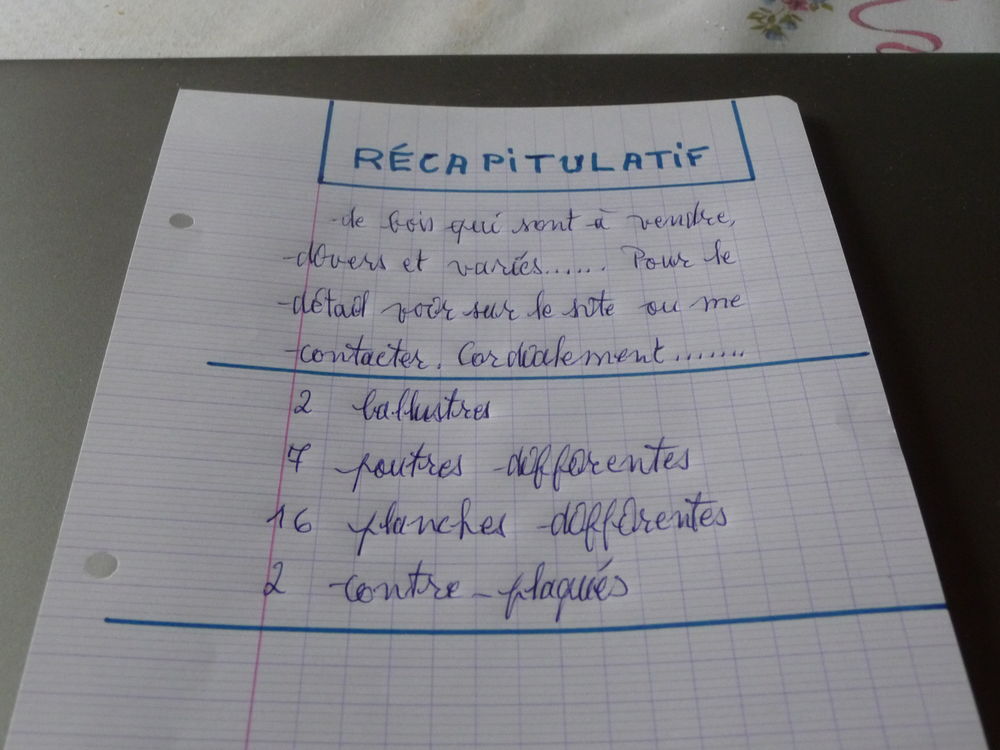 RÉCAPITULATIF
de bois qui sont à vendre,
divers et variés...... Pour le
détail voir sur le site ou me
contacter. Cordialement.......
2 ballustres
7 poutres différentes
16 planches différentes
2 contre-plaqués